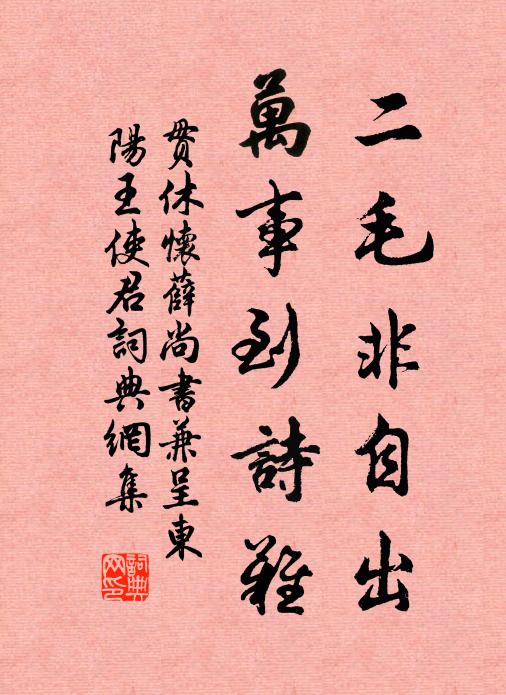 二毛非自出
萬事到詩難
貫休懷薛尚書兼呈東
陽王使君詞典網集
詞典
網印